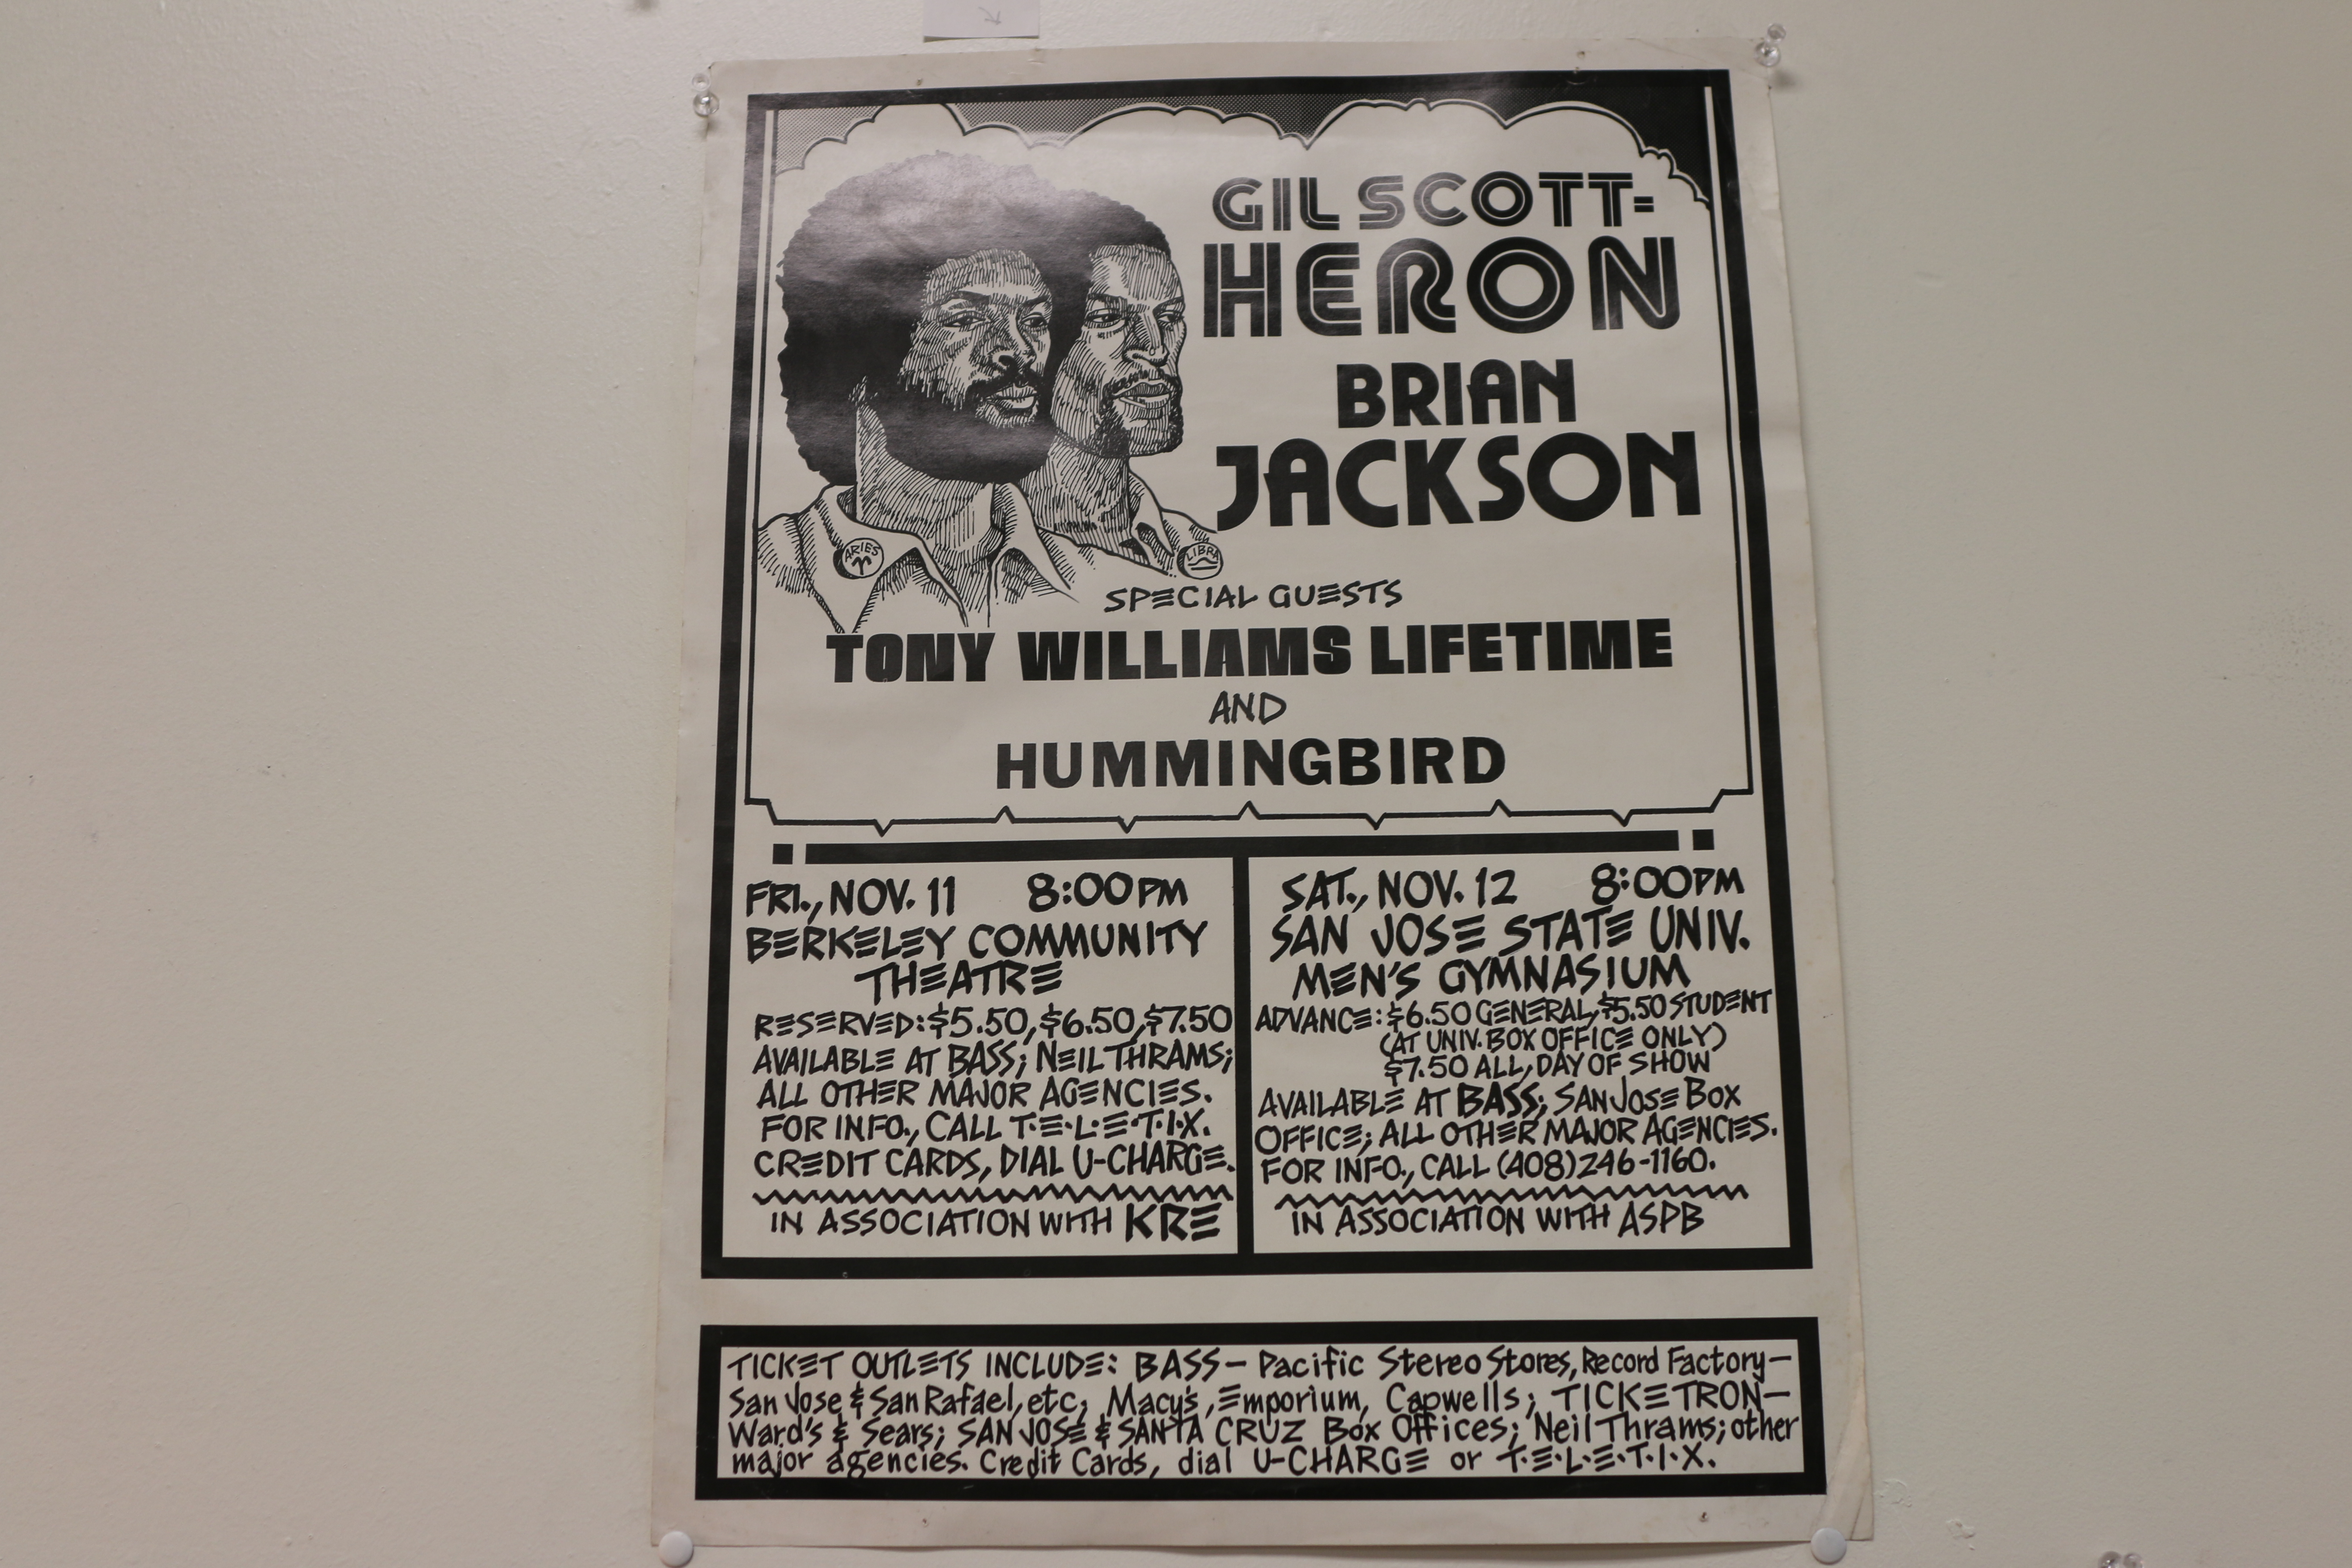 GIL SCOTT-
HERON
BRIAN
JACKSON
ARIES
LIBRA
SPECIAL GUESTS
TONY WILLIAMS LIFETIME
AND
HUMMINGBIRD
FRI., NOV. 11 8:00PM
BERKELEY COMMUNITY
THEATRE
RESERVED: $5.50, $6.50, $7.50
AVAILABLE AT BASS; NEIL THRAMS;
ALL OTHER MAJOR AGENCIES.
FOR INFO., CALL T·E·L·E·T·I·X.
CREDIT CARDS, DIAL U-CHARGE.
IN ASSOCIATION WITH KRE
SAT., NOV. 12 8:00PM
SAN JOSE STATE UNIV.
MEN'S GYMNASIUM
ADVANCE: $6.50 GENERAL, $5.50 STUDENT
(AT UNIV. BOX OFFICE ONLY)
$7.50 ALL, DAY OF SHOW
AVAILABLE AT BASS; SAN JOSE BOX
OFFICE; ALL OTHER MAJOR AGENCIES.
FOR INFO., CALL (408) 246-1160.
IN ASSOCIATION WITH ASPB
TICKET OUTLETS INCLUDE: BASS— Pacific Stereo Stores, Record Factory—
San Jose & San Rafael, etc; Macy's, Emporium, Capwells; TICKETRON—
Ward's & Sears; SAN JOSE & SANTA CRUZ Box Offices; Neil Thrams; other
major agencies. Credit Cards, dial U-CHARGE or T·E·L·E·T·I·X.